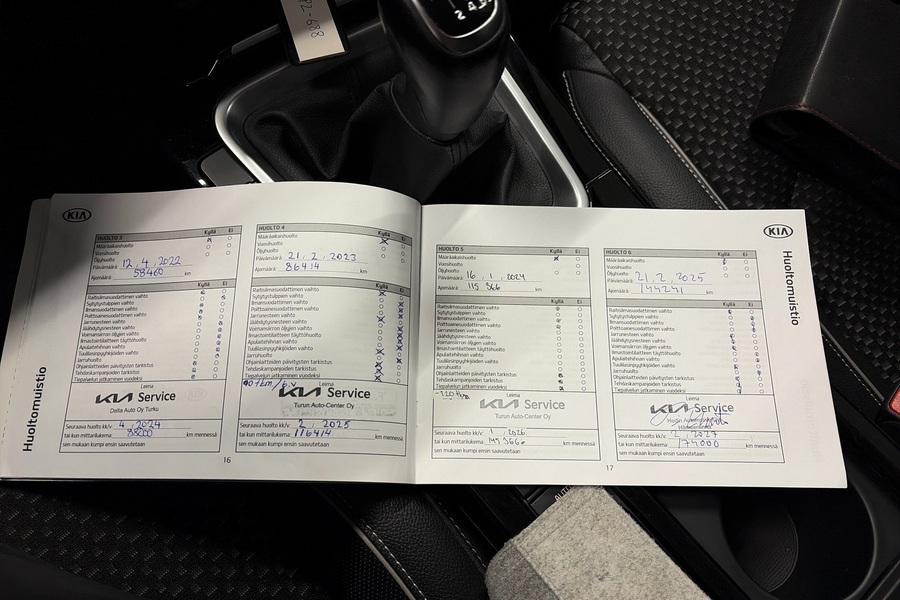 2 4
KIA
HUOLTO 3 Kyllä Ei
Määräaikaishuolto
Vuosihuolto
Öljyhuolto
Päivämäärä 12.4.2022
Ajomäärä 58460 km
Kyllä Ei
Raitisilmasuodattimen vaihto
Sytytystulppien vaihto
Ilmansuodattimen vaihto
Polttoainesuodattimen vaihto
Jarrunesteen vaihto
Jäähdytysnesteen vaihto
Voimansiirron öljyjen vaihto
Ilmastointilaitteen täyttöhuolto
Apulaitehihnan vaihto
Tuulilasinpyyhkijänsulat vaihto
Jarruhuolto
Ohjainlaitteiden päivitysten tarkistus
Tehdaskampanjoiden tarkistus
Tiepalvelun jatkaminen vuodeksi
Leima
KIA Service
Delta Auto Oy Turku
Seuraava huolto kk/v. 4.2024
tai kun mittarilukema: 88200 km mennessä
sen mukaan kumpi ensin saavutetaan
HUOLTO 4 Kyllä Ei
Määräaikaishuolto
Vuosihuolto
Öljyhuolto
Päivämäärä 21.2.2023
Ajomäärä 86414 km
Kyllä Ei
Raitisilmasuodattimen vaihto
Sytytystulppien vaihto
Ilmansuodattimen vaihto
Polttoainesuodattimen vaihto
Jarrunesteen vaihto
Jäähdytysnesteen vaihto
Voimansiirron öljyjen vaihto
Ilmastointilaitteen täyttöhuolto
Apulaitehihnan vaihto
Tuulilasinpyyhkijänsulat vaihto
Jarruhuolto
Ohjainlaitteiden päivitysten tarkistus
Tehdaskampanjoiden tarkistus
Tiepalvelun jatkaminen vuodeksi
Leima
KIA Service
Turun Auto-Center Oy
Seuraava huolto kk/v. 2.2025
tai kun mittarilukema: 116414 km mennessä
sen mukaan kumpi ensin saavutetaan
Huoltomuistio
16
KIA
HUOLTO 5 Kyllä Ei
Määräaikaishuolto
Vuosihuolto
Öljyhuolto
Päivämäärä 16.1.2024
Ajomäärä 115 366 km
Kyllä Ei
Raitisilmasuodattimen vaihto
Sytytystulppien vaihto
Ilmansuodattimen vaihto
Polttoainesuodattimen vaihto
Jarrunesteen vaihto
Jäähdytysnesteen vaihto
Voimansiirron öljyjen vaihto
Ilmastointilaitteen täyttöhuolto
Apulaitehihnan vaihto
Tuulilasinpyyhkijänsulat vaihto
Jarruhuolto
Ohjainlaitteiden päivitysten tarkistus
Tehdaskampanjoiden tarkistus
Tiepalvelun jatkaminen vuodeksi
Leima
KIA Service
Turun Auto-Center Oy
Seuraava huolto kk/v. 1.2026
tai kun mittarilukema: 145 366 km mennessä
sen mukaan kumpi ensin saavutetaan
HUOLTO 6 Kyllä Ei
Määräaikaishuolto
Vuosihuolto
Öljyhuolto
Päivämäärä 21.2.2025
Ajomäärä 144241 km
Kyllä Ei
Raitisilmasuodattimen vaihto
Sytytystulppien vaihto
Ilmansuodattimen vaihto
Polttoainesuodattimen vaihto
Jarrunesteen vaihto
Jäähdytysnesteen vaihto
Voimansiirron öljyjen vaihto
Ilmastointilaitteen täyttöhuolto
Apulaitehihnan vaihto
Tuulilasinpyyhkijänsulat vaihto
Jarruhuolto
Ohjainlaitteiden päivitysten tarkistus
Tehdaskampanjoiden tarkistus
Tiepalvelun jatkaminen vuodeksi
Leima
KIA Service
Seuraava huolto kk/v. 2.2027
tai kun mittarilukema: 174000 km mennessä
sen mukaan kumpi ensin saavutetaan
Huoltomuistio
17